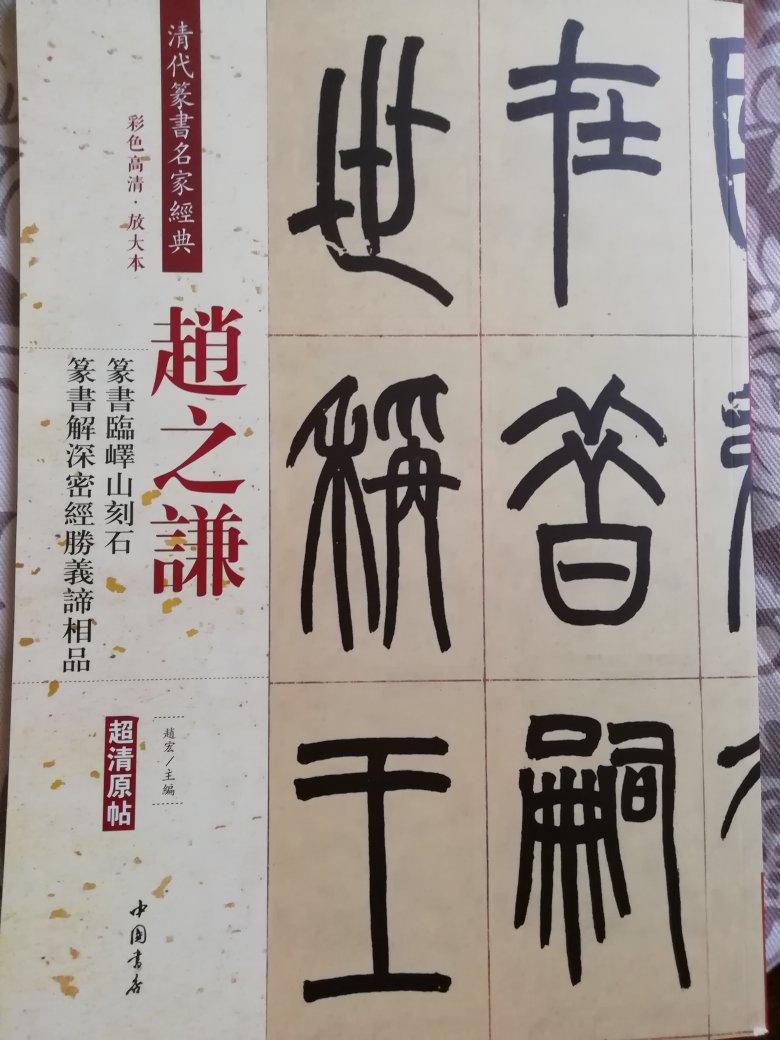 清代篆書名家經典
彩色高清·放大本
趙之謙
篆書臨嶧山刻石
篆書解深密經勝義諦相品
趙宏/主編
超清原帖
中国書店
在昔嗣
世稱王